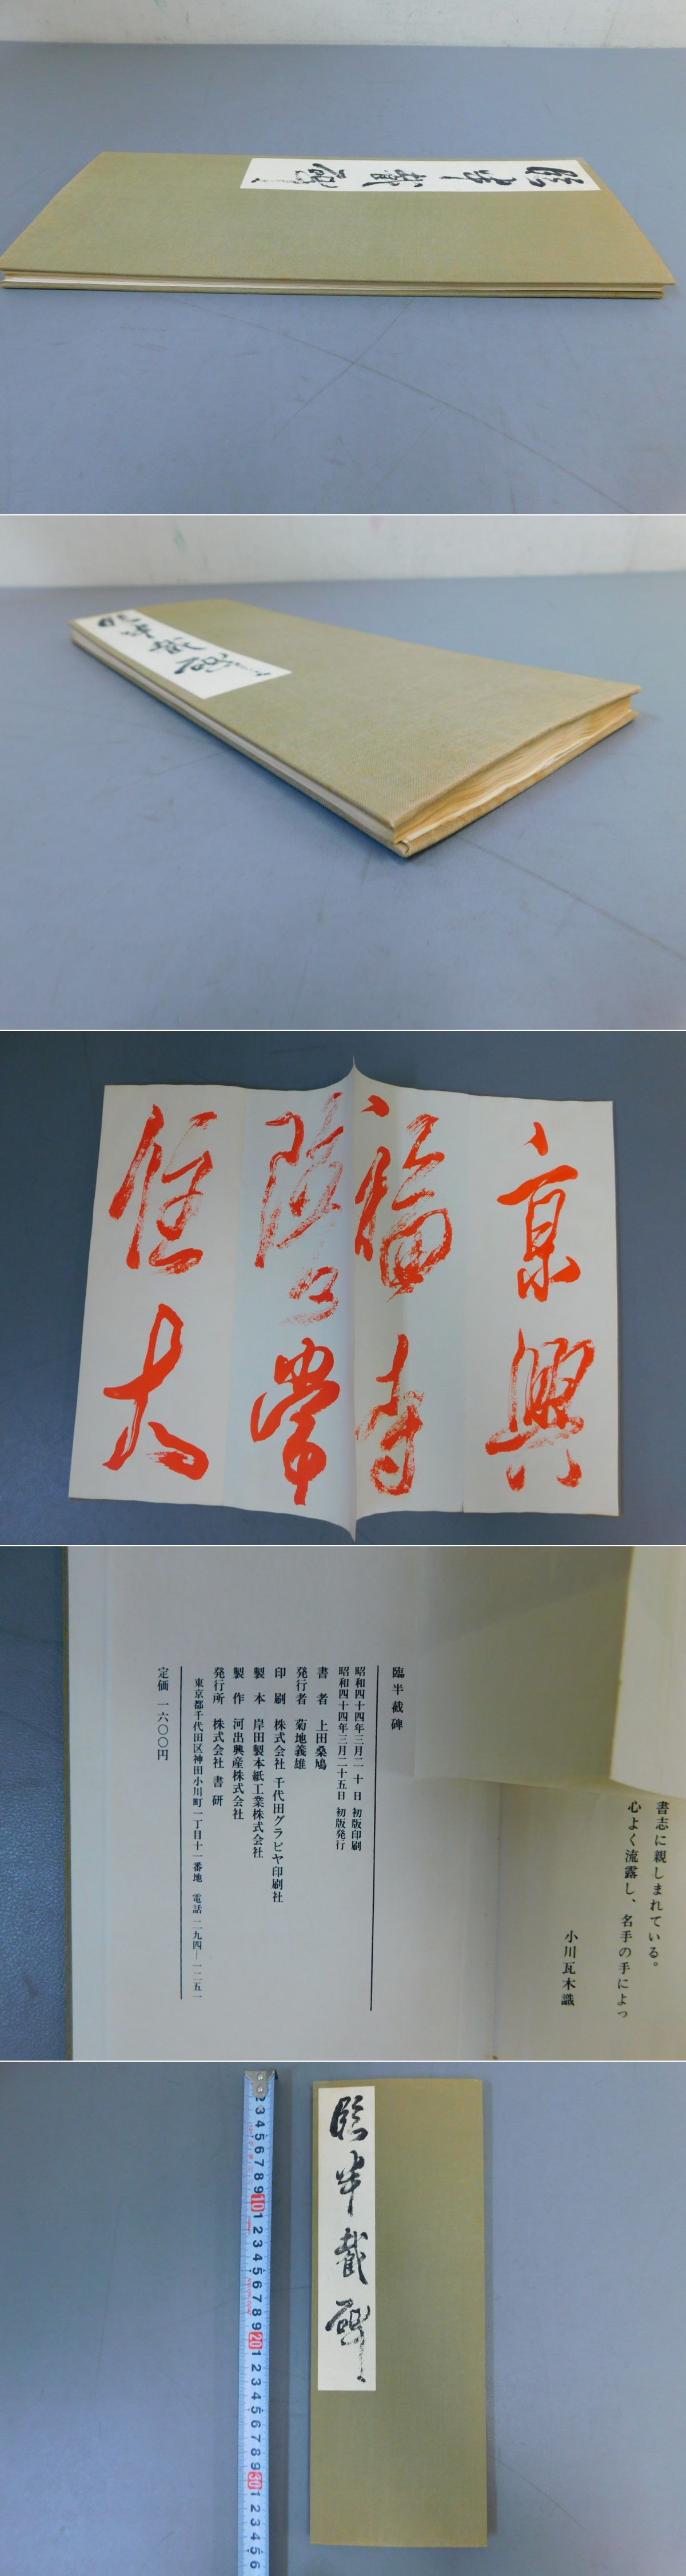 臨半截碑
臨半截碑
京興
福寺
陰公常
住大
臨半截碑
昭和四十四年三月二十日 初版印刷
昭和四十四年三月二十五日 初版発行
書者 上田桑鳩
発行者 菊地義雄
印刷 株式会社 千代田グラビヤ印刷社
製本 岸田製本紙工業株式会社
製作 河出興産株式会社
発行所 株式会社 書研
東京都千代田区神田小川町一丁目十一番地 電話 二九四―一二五一
定価 一六〇〇円
書志に親しまれている。
心よく流露し、名手の手によっ
小川瓦木識
3 4 5 6 7 8 9 10 1 2 3 4 5 6 7 8 9 20 1 2 3 4 5 6 7 8 9 30 1 2 3 4 5 6
臨半截碑